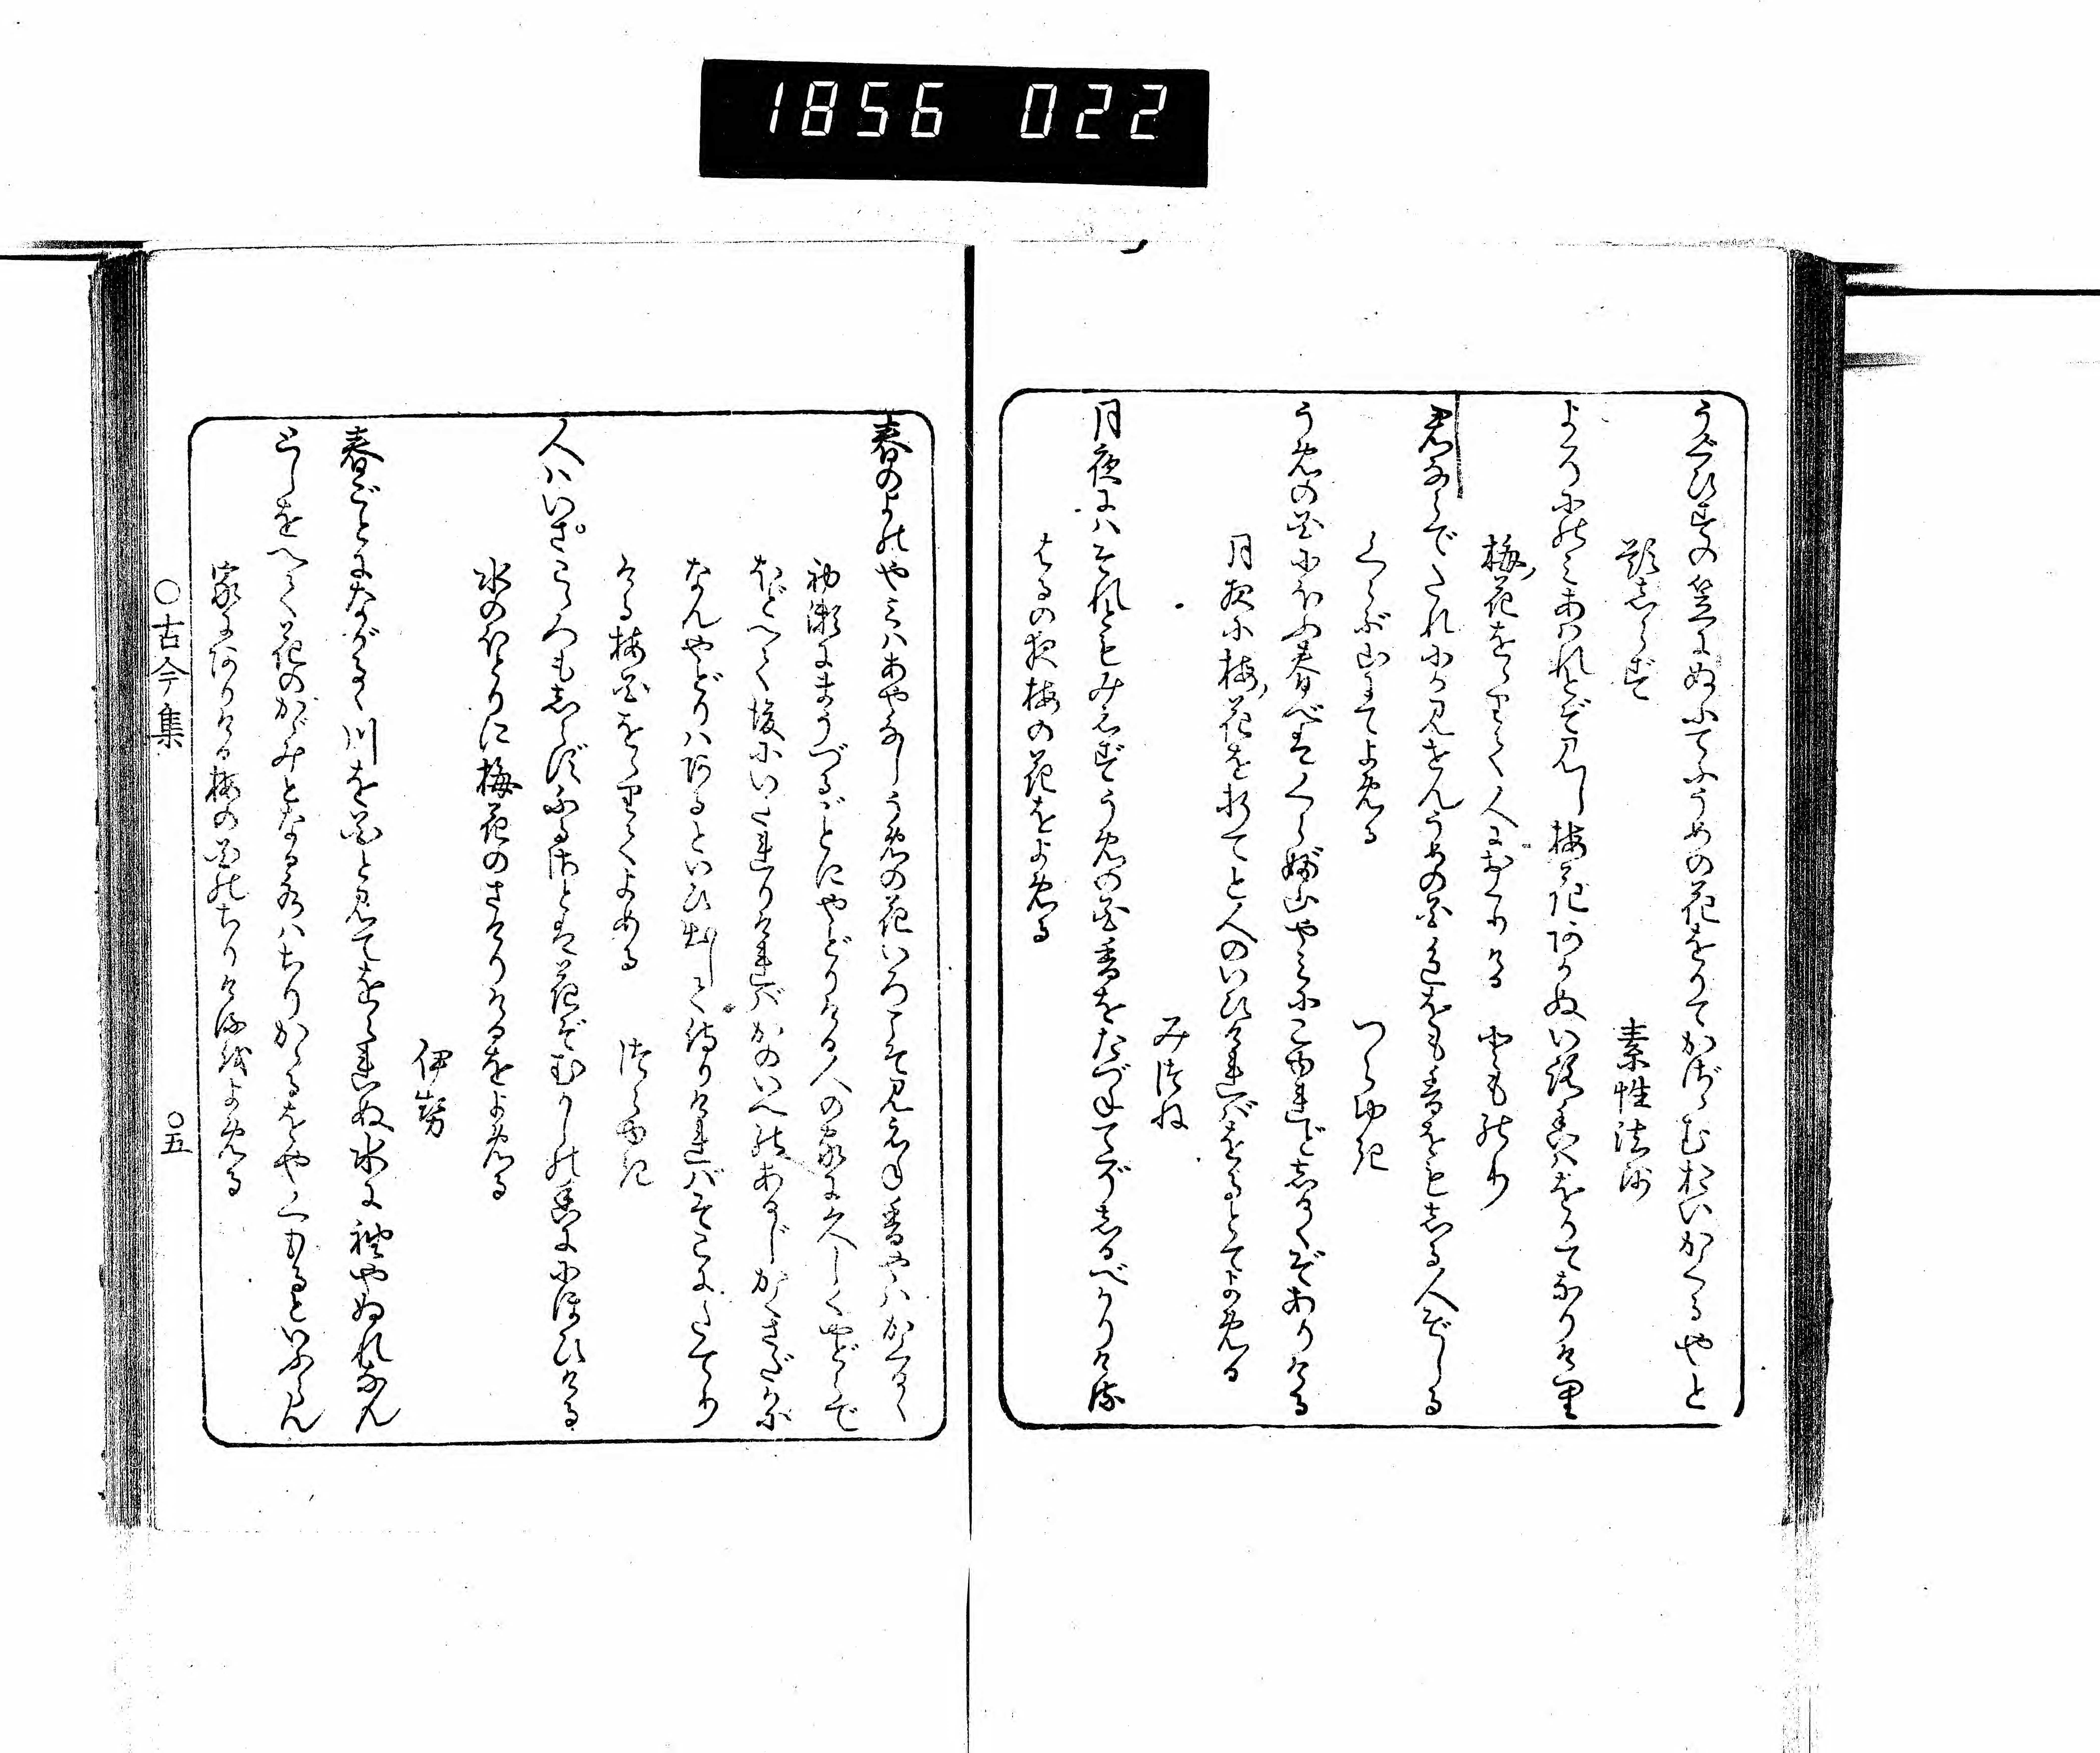 1856 022
うぐひすの笠にぬふてふうめの花をりてかざゝむおいかくるやと
題しらず 素性法師
よそにのみあはれとぞ見し梅花あかぬいろ香はをりてなりけり
梅花ををりて人におくりける とものり
君ならでたれにか見せんうめの花色をも香をもしる人ぞしる
くらぶ山にてよめる つらゆき
うめの花にほふ春べはくらぶ山やみにこゆれどしるくぞありける
月夜に梅花を折てと人のいひければをるとてよめる
みつね
月夜にはそれとも みえずうめの花香をたづねてぞしるべかりける
はるの夜梅の花をよめる
春のよのやみはあやなしうめの花いろこそ見えね香やはかくるゝ
初瀬にまうづるごとにやどりける人の家に久しくやどらで
ほどへて後にいたりければかのいへのあるじかくさだかに
なんやどりはあるといひ出して侍りければそこにたてり
ける梅花ををりてよめる つらゆき
人はいざこゝろもしらずふるさとは花ぞむかしの香ににほひける
水のほとりに梅花のさけりけるをよめる
伊勢
春ごとにながるゝ川を花と見てをられぬ水に袖やぬれなん
としをへて花のかゞみとなる水はちりかゝるをやくもるといふらん
家にありける梅の花のちりけるをよめる
○古今集 ○五